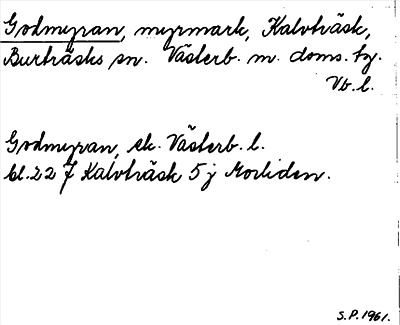 Godmyran, myrmark, Kalvträsk,
Burträsks sn. Västerb. m. doms. tg.
Vb. l.
Godmyran, ek. Västerb. l.
bl. 22 J Kalvträsk 5 j Morliden.
S.P. 1961.